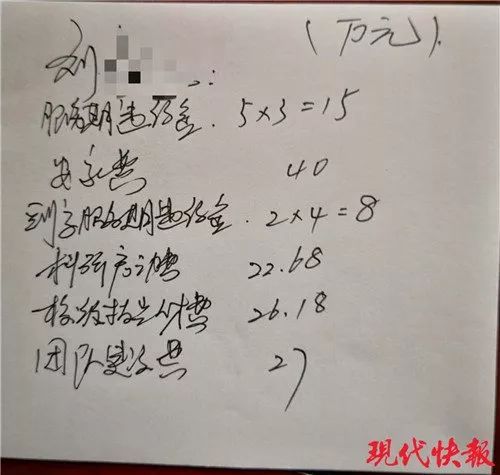 (万元).
刘:
服务期违约金. 5×3=15
安家费 40
服务期违约金. 2×4=8
科研费 22.68
校级拔尖人才费 26.18
团队建设费 27
现代快報